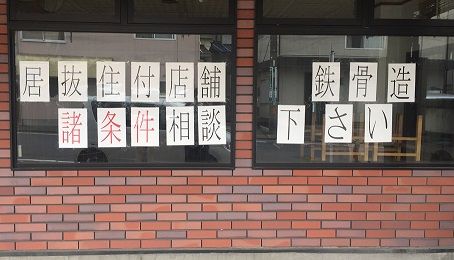 居抜住付店舗 鉄骨造
諸条件相談 下さい